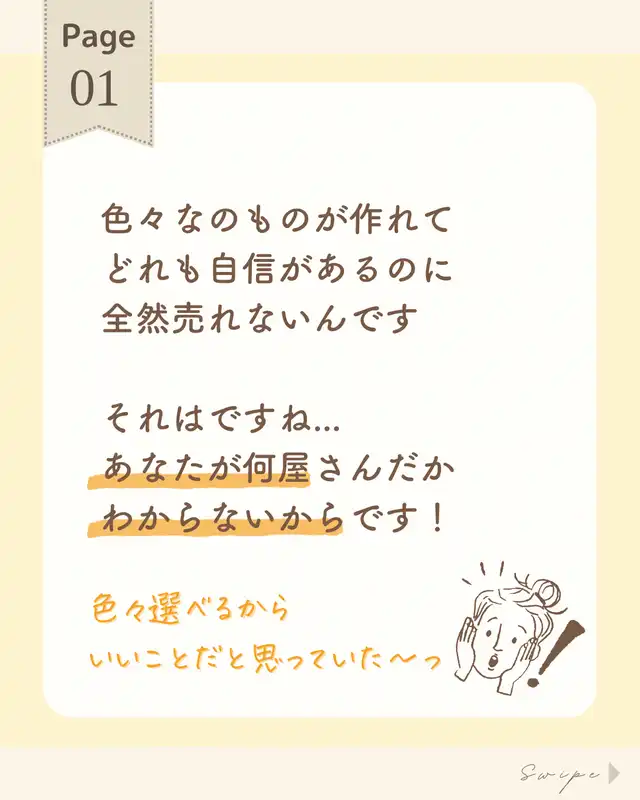 Page
01
色々なのものが作れて
どれも自信があるのに
全然売れないんです
それはですね...
あなたが何屋さんだか
わからないからです！
色々選べるから
いいことだと思っていた〜っ
Swipe